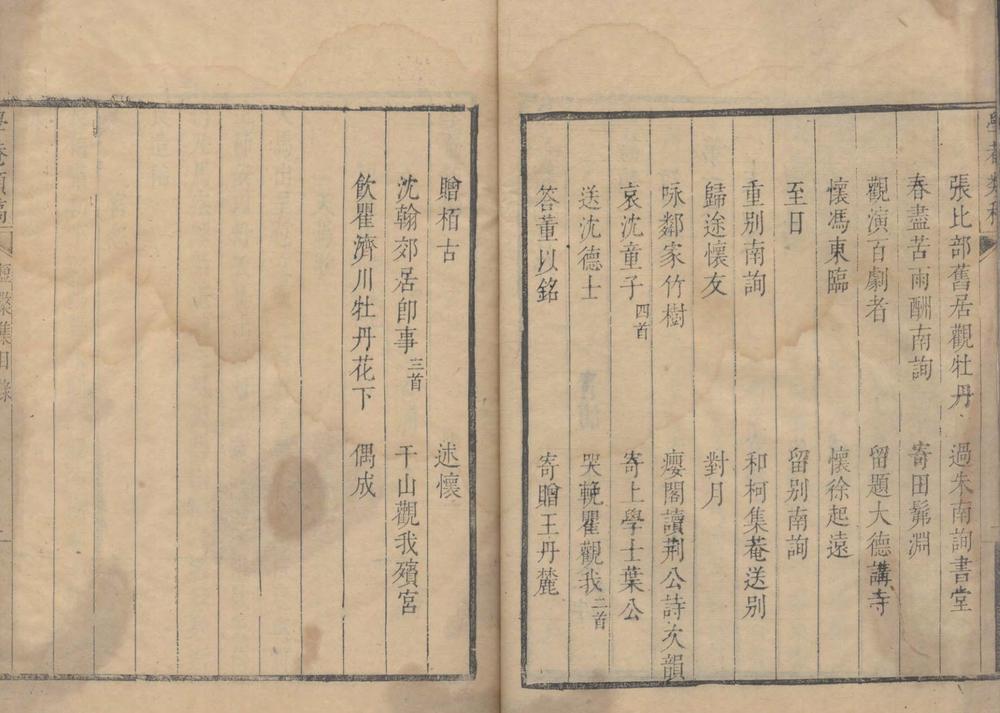 張比部舊居觀牡丹 過朱南詢書堂
春盡苦雨酬南詢 寄田髴淵
觀演百劇者 留題大德講寺
懷馮東臨 懷徐起遠
至日 留別南詢
重別南詢 和柯集菴送別
歸途懷友 對月
咏鄰家竹樹 癭閣讀荆公詩次韻
哀沈童子四首 寄上學士葉公
送沈德士 哭輓瞿觀我二首
答董以銘 寄贈王丹麓
贈栢古 述懷
沈翰郊居卽事三首 干山觀我殯宮
飲瞿濟川牡丹花下 偶成